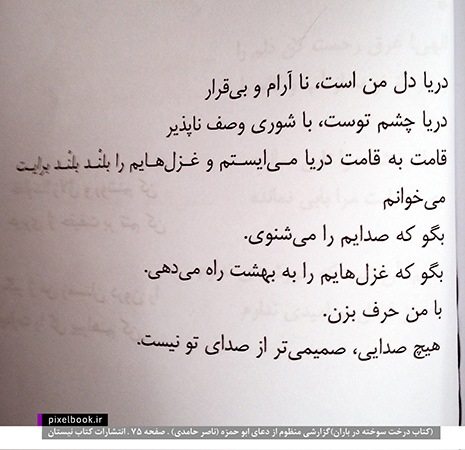 دریا دل من است، نا آرام و بی‌قرار
دریا چشم توست، با شوری وصف ناپذیر
قامت به قامت دریا می‌ایستم و غزل‌هایم را بلند بلند برایت
می‌خوانم
بگو که صدایم را می‌شنوی.
بگو که غزل‌هایم را به بهشت راه می‌دهی.
با من حرف بزن.
هیچ صدایی، صمیمی‌تر از صدای تو نیست.
pixelbook.ir
(کتاب درخت سوخته در باران)گزارشی منظوم از دعای ابو حمزه (ناصر حامدی) . صفحه ۷۵ . انتشارات کتاب نیستان